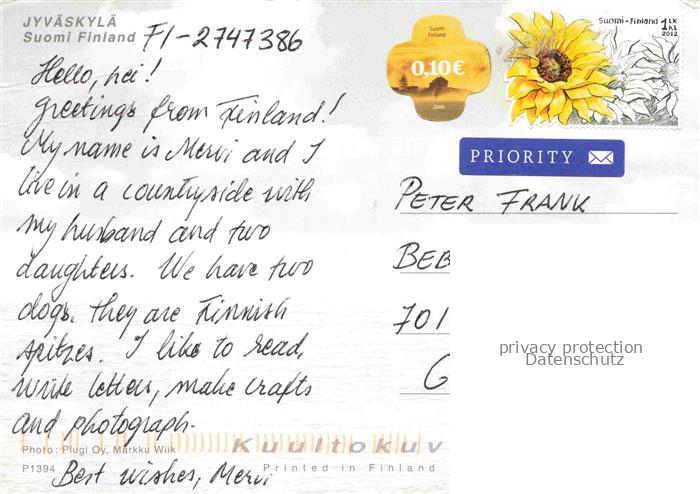 JYVÄSKYLÄ
Suomi Finland
FI-2747386
Hello, hei!
Greetings from Finland!
My name is Mervi and I
live in a countryside with
my husband and two
daughters. We have two
dogs, they are Finnish
spitzes. I like to read,
write letters, make crafts
and photograph.
Best wishes, Mervi
Photo: Plugi Oy, Markku Wiik
P1394
Kuultokuv
Printed in Finland
Suomi
Finland
0,10€
2008
Suomi-Finland
1 LK
KL
2012
PRIORITY
PETER FRANK
BEB
701
G
privacy protection
Datenschutz